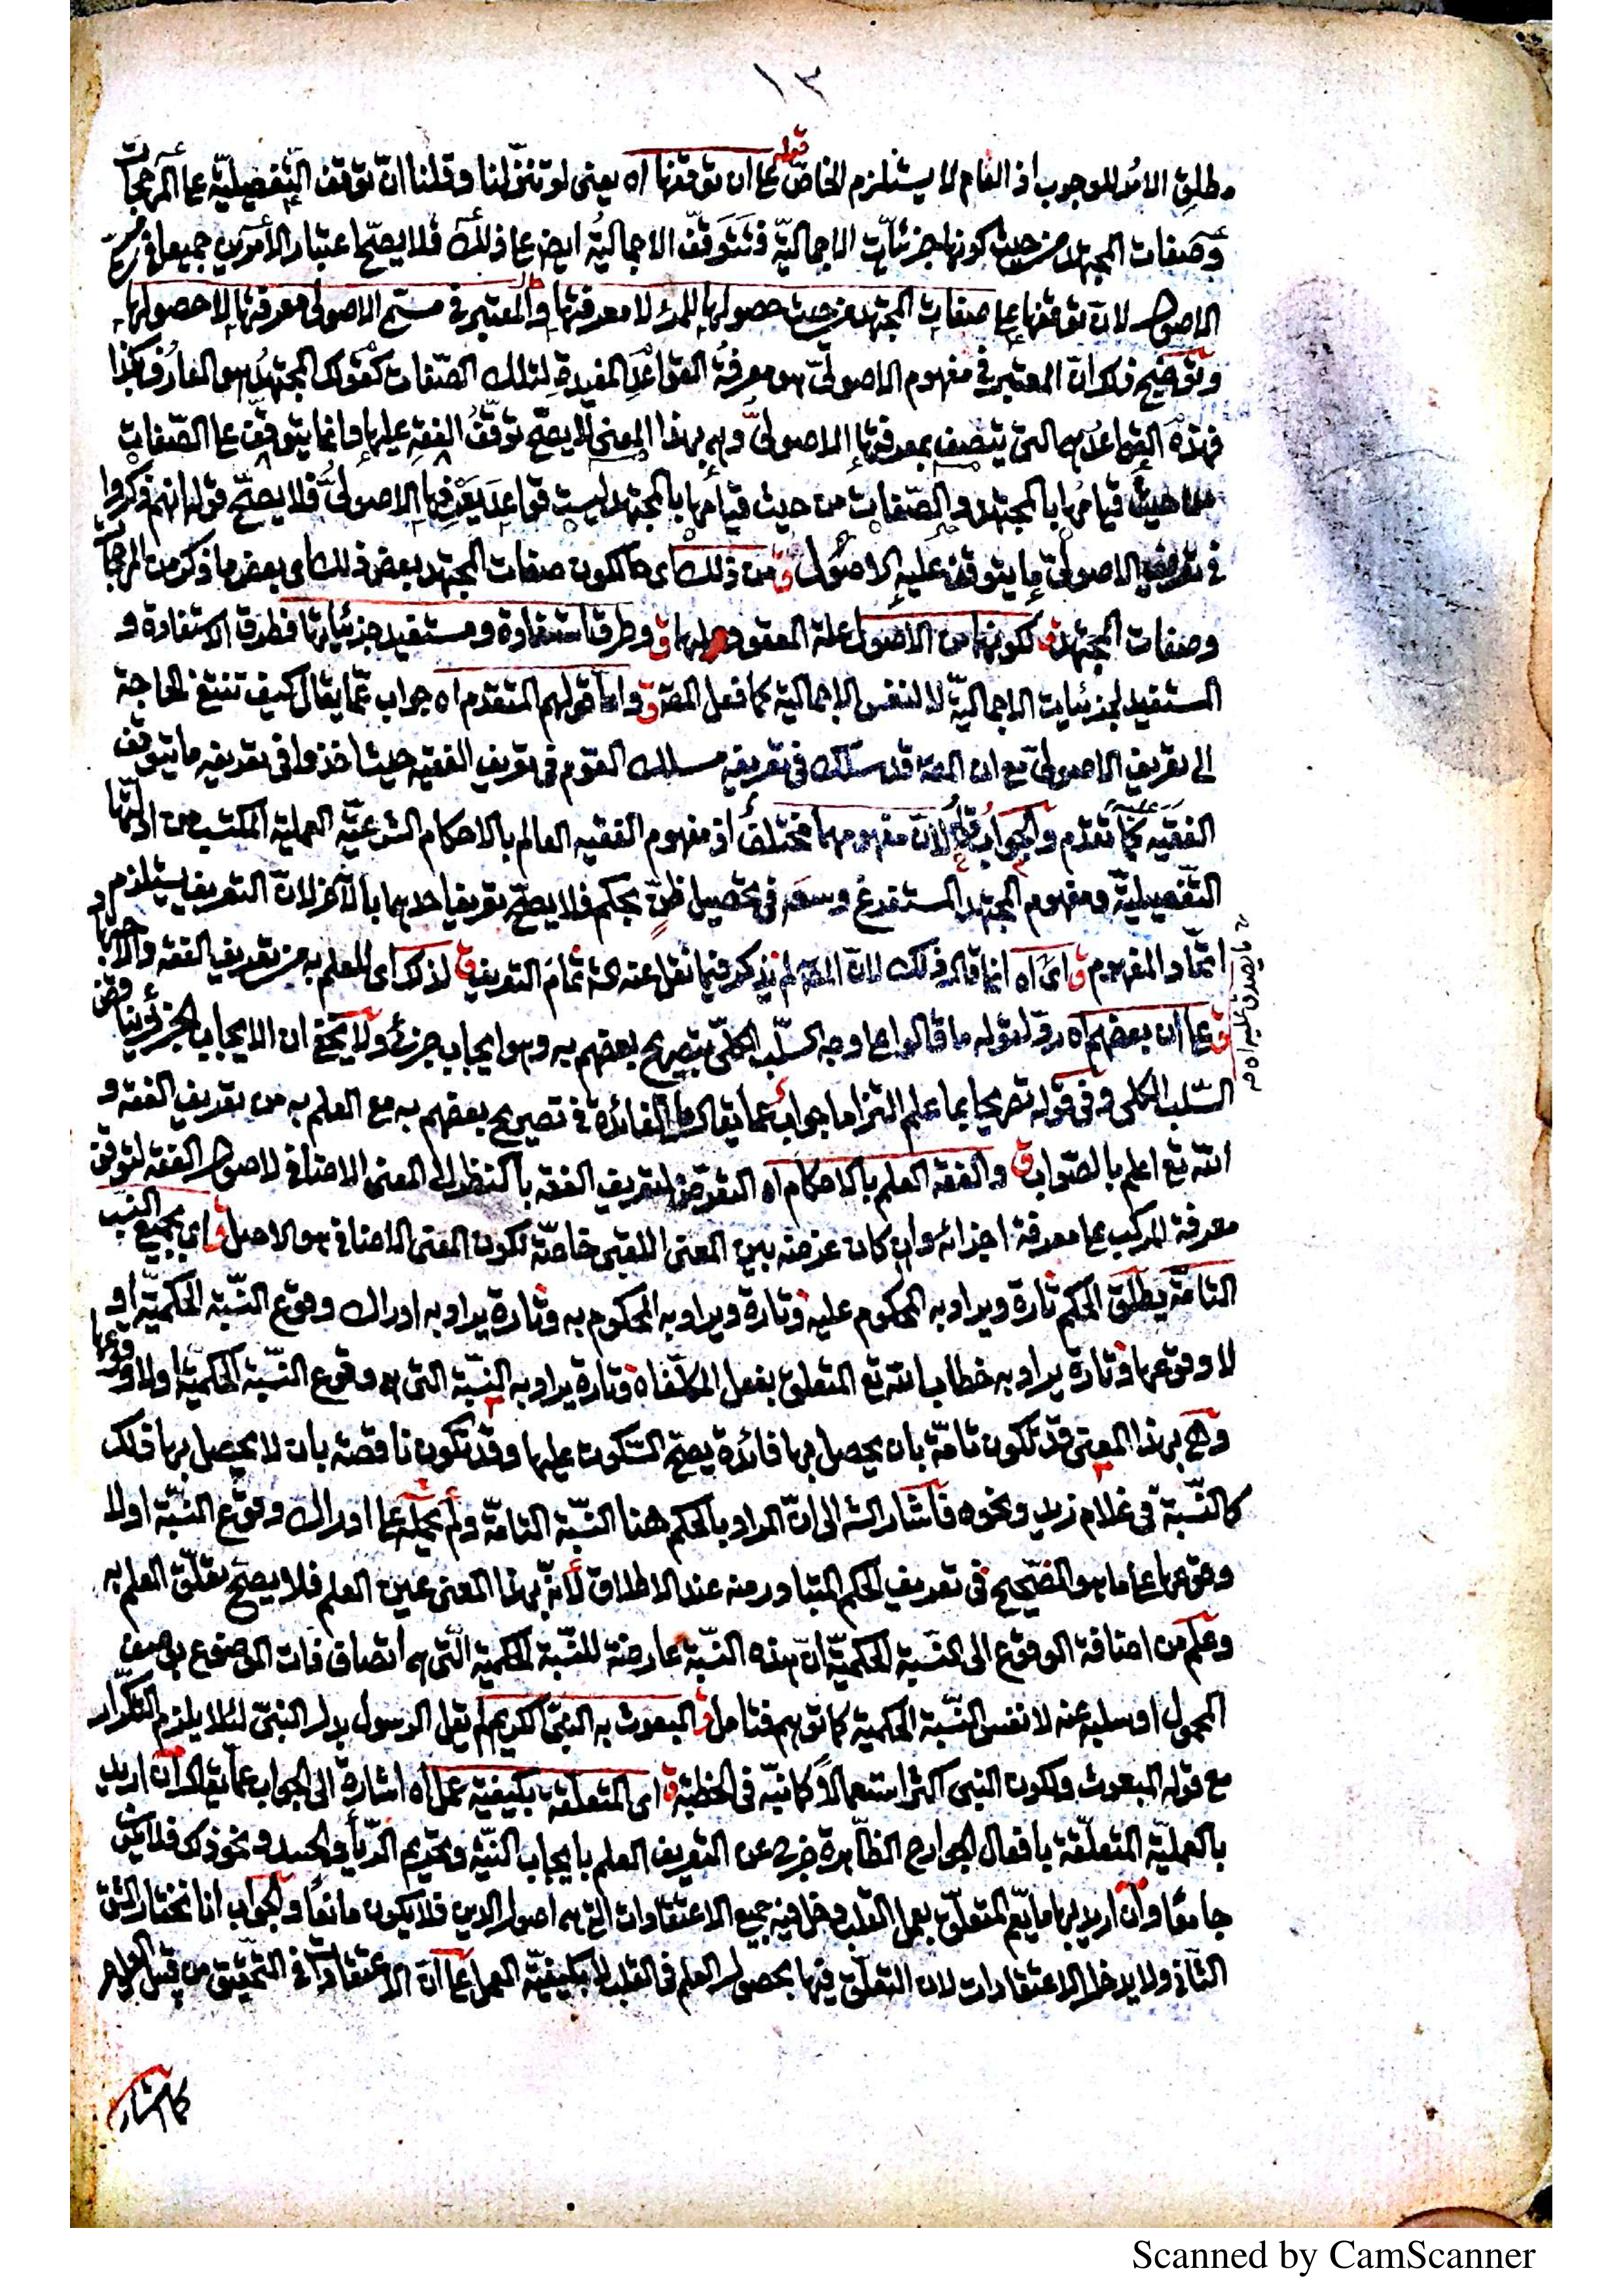 ١٣
مطلق الامر للوجوب اذ العام لا يستلزم الخاصّ قوله على ان توقفها اه يعنى لو تنزّلنا و قلنا انّ توقف التّفصيليّة على المرجّحات
وصفات المجتهد من حيث كونها جزئيّات الاجماليّة فتتوقّف الاجماليّةُ ايض على ذلك فلا يصحّ اعتبار الأمرين جميعا فى
الاصول لان توقفها على صفات المجتهد من حيث حصولها للمرء لا معرفتها والمعتبر فى مسمّى الاصولى معرفتها لا حصولها
وتوضيح ذلك انّ المعتبر فى مفهوم الاصولىّ هو معرفةُ القواعدِ المفيدةِ لتلك الصّفات كقولك المجتهدُ هو العارف بكذا
فهذه القواعدُ هى التى يتّصف بمعرفتها الاصولىُّ وهى بهذا المعنى لا يصحّ توقّفُ الفقهِ عليها وانما يتوقّف على الصّفات
من حيث قيامُها بالمجتهد والصّفات من حيث قيامُها بالمجتهد ليست قواعدَ يَعْرِفها الاصولىُّ فلا يصحّ قوله انهم ذكروا
فى تعريف الاصولىّ ما يتوقّف عليه الاصول ق من ذلك اى ككون صفات المجتهد بعض ذلك اى بعض ما ذكر من المرجّحات
وصفات المجتهد ق لكونها من الاصول علة المعقود لها ق وطرق استفادة ومستفيد جزئياتها فطرق الاستفادة و
المستفيد لجزئيات الاجماليّة لا لنفس الاجمالية كما فعل المص ق واما قولهم المتقدم اه جواب عمّا يقال كيف تنتفى الحاجة
الى تعريف الاصولىّ مع ان المص قد سلك فى تعريفه مسلك القوم فى تعريف الفقيه حيث اخذوا فى تعريفه ما يتوقّف
عليه الفقيه كما تقدّم والجوابُ ق لانّ مفهومهما مختلفٌ اذ مفهوم الفقيه العالم بالاحكام الشرعيّة العملية المكتسب من ادلّتها
التّفصيليّة ومفهوم المجتهد المستفرغ وسعه فى تحصيل ظنّ بحكم فلا يصحّ تعريف احدهما بالآخر لانّ التعريف يستلزم
اتّحاد المفهوم ق اى اه انما قال ذلك لانّ المص لم يذكر فيما نقل عنه تمّامَ التعريف ق لذلك اى للعلم به من تعريف الفقه
ق على ان بعضهم اه ردّ لقوله ما قالوا على وجه السّلب الكلّى بتصريح بعضهم به وهو ايجاب جزئى ولا يخفى ان الايجاب الجزئى يناقض
السّلب الكلى وفى قوله تصريحا بما علم التزاما جوابٌ عما يقال ما الفائدة فى تصريح بعضهم به مع العلم به من تعريف الفقه و
الله تع اعلم بالصّواب ق والفقه العلم بالاحكام اه التعرّض لتعريف الفقه بالنظر الى المعنى الاضافى لاصول الفقه لتوقّف
معرفة المركب على معرفة اجزائه وان كان غرضه بين المعنى اللقبى خاصّة لكون المعنى الاضافى هو الاصل ق اى بجميع النّسب
التامّة يطلق الحكم تارة ويراد به المحكوم عليه وتارة ويراد به المحكوم به وتارة يراد به ادراك وقوع النّسبة الحكميّة او
لا وقوعها وتارة يراد به خطاب الله تع المتعلق بفعل المكلّف اه وتارة يراد به النّسبة التى هى وقوع النّسبة الحكميّة اولا وقوعها
وهى بهذا المعنى قد تكون تامّة بان يحصل بها فائدة يصحّ السّكوت عليها وقد تكون ناقصة بان لا يحصل بها ذلك
كالنّسبة فى غلام زيد ونحوه فاشار الش الى انّ المراد بالحكم هنا النّسبة التامّة ولم يحمله على ادراك وقوع النّسبة اولا
وقوعها على ما هو الصّحيح فى تعريف الحكم المتبادر منه عند الاطلاق لأنه بهذا المعنى عين العلم فلا يصحّ تعلّق العلم به
وعلم من اضافة الوقوع الى النّسبة الحكميّة انّ هذه النّسبة عارضة للنّسبة الحكمية الّتى هى اتصاف ذات الموضوع بوصف
المحمول او سلبه عنه لا نفس النّسبة الحكمية كما توهم فتامل ق المبعوث به النبىّ الكريم لم يقل الرسول بدل النبىّ لئلا يلزم التكرار
مع قوله المبعوث ولكون النبى اكثر استعمالاً كما نبّه فى الخطبة ق اى المتعلقة بكيفية عمل اه اشارة الى الجواب عما يقال ان اريد
بالعمليّة المتعلّقة بافعال الجوارح الظّاهرة خرج عن التعريف العلم بايجاب النيّة وتحريم الرّياء والحسد ونحو ذلك فلا يكون
جامعًا وان اريد بها ما يعمّ المتعلّق بعمل القلب دخل فيه جميع الاعتقادات التى هى اصول الدين فلا يكون مانعًا والجواب انا نختار الشق
الثّانى ولا يدخل الاعتقادات لان التعلّق فيها بحصول العلم فى القلب لا بكيفيّة العمل على انّ الاعتقادات فى التّحقيق من قبيل العلم
كما اشار
Scanned by CamScanner